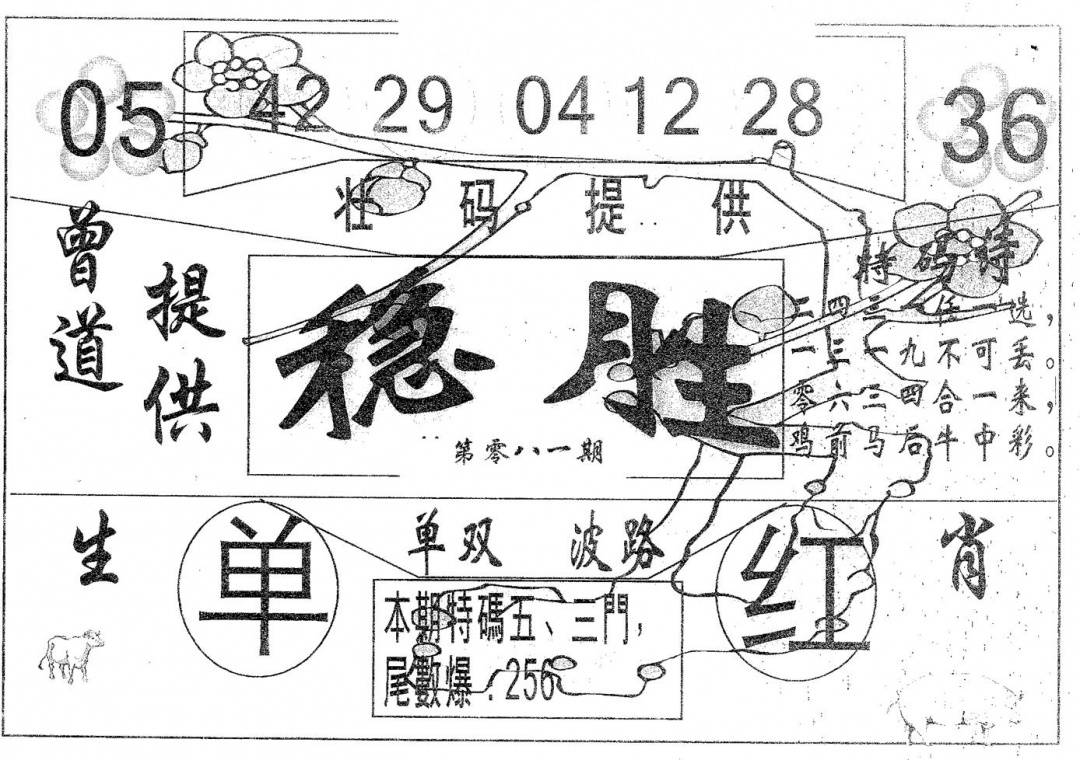 05 42 29 04 12 28 36
壮码提供
曾道
提供
稳胜
第零八一期
特码诗
三四三一任一选，
一三一九不可丢。
零六三四合一来，
鸡前马后牛中彩。
生
单
单双 波路
红
肖
本期特碼五、三門，
尾數爆：256